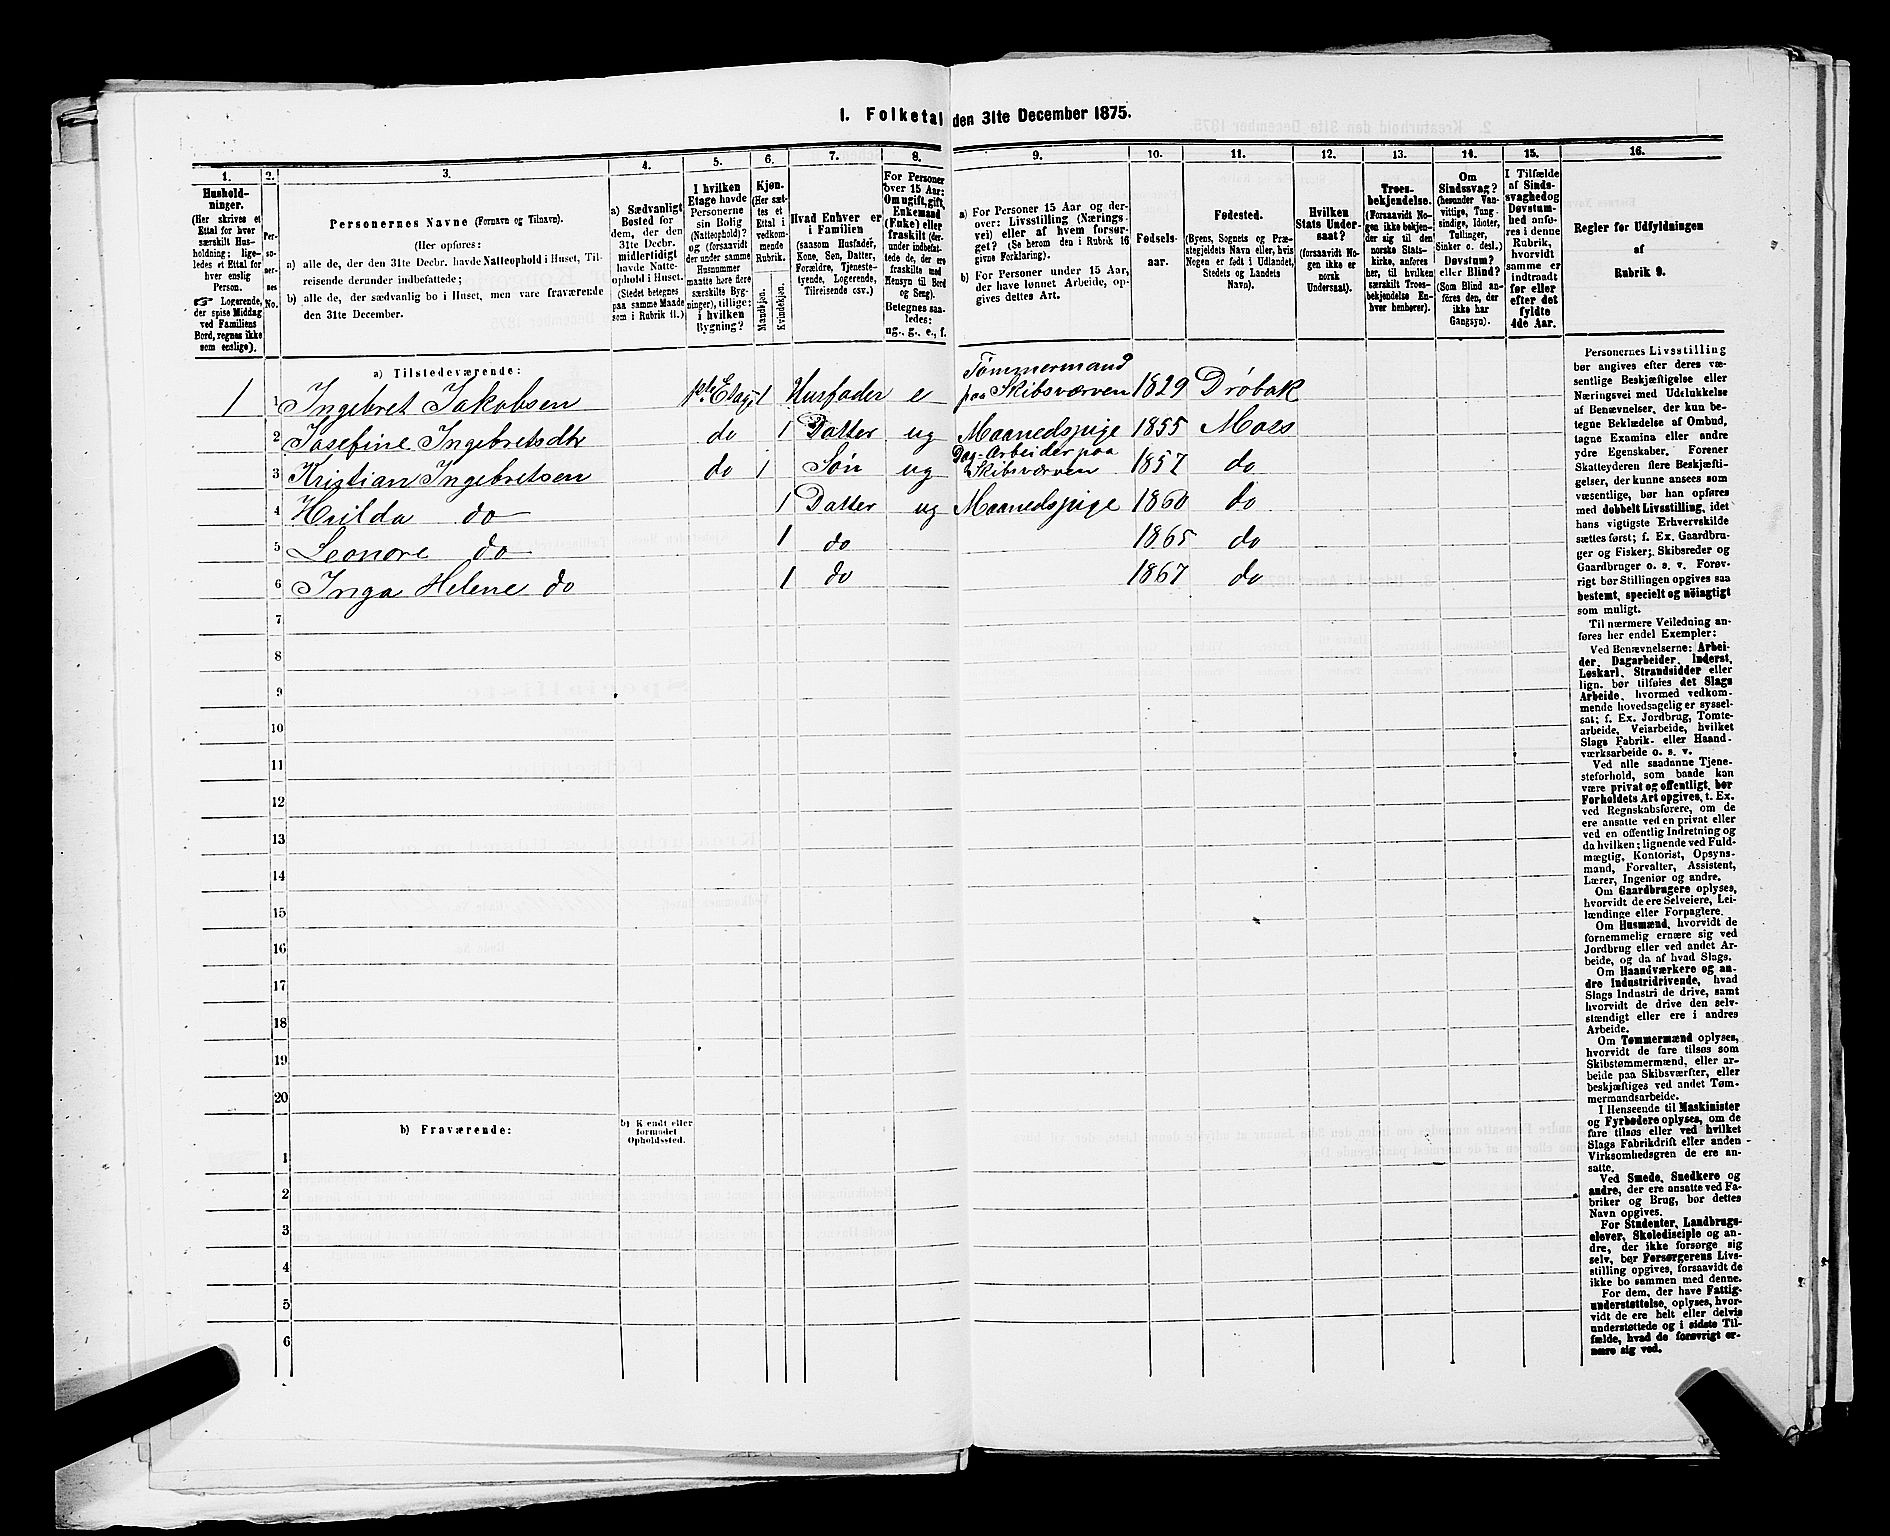 1. Folketal den 31te December 1875.
1. 2. 3. 4. 5. 6. 7. 8. 9. 10. 11. 12. 13. 14. 15. 16.
Hushold-
ninger.
(Her skrives et
Ettal for hver
særskilt Hus-
holdning; lige-
ledes et Ettal for
hver enslig
Person.
☞ Logerende,
der spise Middag
ved Familiens
Bord, regnes ikke
som enslige).
Per-
so-
ner-
nes
No.
Personernes Navne (Fornavn og Tilnavn).
(Her opføres:
a) alle de, der den 31te Decbr. havde Natteophold i Huset, Til-
reisende derunder indbefattede;
b) alle de, der sædvanlig bo i Huset, men vare fraværende
den 31te December.
a) Sædvanligt
Bosted for
dem, der den
31te Decbr.
midlertidigt
havde Natte-
ophold i Huset.
(Stedet betegnes
paa samme Maade
som i Rubrik 11.)
I hvilken
Etage havde
Personerne
sin Bolig
(Natteophold)?
og (forsaavidt
der under samme
Husnummer
maatte høre flere
særskilte Byg-
ninger), tillige:
i hvilken
Bygning?
Kjøn.
(Her sæt-
tes et
Ettal i
vedkom-
mende
Rubrik.
Mandkjøn.
Kvindekjøn.
Hvad Enhver er
i Familien
(saasom Husfader,
Kone, Søn, Datter,
Forældre, Tjeneste-
tyende, Logerende,
Tilreisende osv.)
For Personer
over 15 Aar:
Om ugift, gift,
Enkemand
(Enke) eller
fraskilt (der-
under indbefat-
tede de, der ere
fraskilte med
Hensyn til Bord
og Seng).
Betegnes saa-
ledes:
ug., g., e., f.
a) For Personer 15 Aar og der-
over: Livsstilling (Nærings-
vei) eller af hvem forsør-
get? (Se herom den i Rubrik 16
givne Forklaring).
b) For Personer under 15 Aar,
der have lønnet Arbeide, op-
gives dettes Art.
Fødsels-
aar.
Fødested.
(Byens, Sognets og Præ-
stegjeldets Navn eller, hvis
Nogen er født i Udlandet,
Stedets og Landets
Navn).
Hvilken
Stats Under-
saat?
(forsaavidt No-
gen ikke er
norsk
Undersaat).
Troes-
bekjendelse.
(Forsaavidt No-
gen ikke bekjen-
der sig til den
norske Stats-
kirke, anføres
her, til hvilken
særskilt Troes-
bekjendelse En-
hver henhører).
Om
Sindssvag?
(herunder Van-
vittige, Tung-
sindige, Idioter,
Tullinger,
Sinker o. desl.)
Døvstum?
eller Blind?
(Som Blind an-
føres den, der
ikke har
Gangsyn).
I Tilfælde
af Sinds-
svaghed og
Døvstum-
hed anfø-
res i denne
Rubrik,
hvorvidt
samme er
indtraadt
før eller
efter det
fyldte
4de Aar.
Regler for Udfyldningen
af
Rubrik 9.
a) Tilstedeværende:
1 1 Ingebret Jakobsen 1ste Etage 1 Husfader e Tømmermand paa Skibsværven 1829 Drøbak
2 Josefine Ingebretsdtr do 1 Datter ug Maanedspige 1855 Moss
3 Kristian Ingebretsen do 1 Søn ug Dag-Arbeider paa Skibsværven 1857 do
4 Hvilda do 1 Datter ug Maanedspige 1860 do
5 Leonore do 1 do 1865 do
6 Inga Helene do 1 do 1867 do
7
8
9
10
11
12
13
14
15
16
17
18
19
20
b) Fraværende:
b) Kjendt eller
formodet
Opholdssted.
1
2
3
4
5
6
Personernes Livsstilling
bør angives efter deres væ-
sentlige Beskjæftigelse eller
Næringsvei med Udelukkelse
af Benævnelser, der kun be-
tegne Beklædelse af Ombud,
tagne Examina eller andre
ydre Egenskaber. Forener
Skatteyderen flere Beskjæfti-
gelser, der kunne ansees som
væsentlige, bør han opføres
med dobbelt Livsstilling, idet
hans vigtigste Erhvervskilde
sættes først; f. Ex. Gaardbru-
ger og Fisker; Skibsreder og
Gaardbruger o. s. v. Forøv-
rigt bør Stillingen opgives saa
bestemt, specielt og nøiagtigt
som muligt.
Til nærmere Veiledning an-
føres her endel Exempler:
Ved Benævnelserne: Arbei-
der, Dagarbeider, Inderst,
Løskarl, Strandsidder eller
lign. bør tilføies det Slags
Arbeide, hvormed vedkom-
mende hovedsagelig er syssel-
sat; f. Ex. Jordbrug, Tomte-
arbeide, Veiarbeide, hvilket
Slags Fabrik- eller Haand-
værksarbeide o. s. v.
Ved alle saadanne Tjene-
steforhold, som baade kan
være privat og offentligt, bør
Forholdets Art opgives, t. Ex.
ved Regnskabsførere, om de
ere ansatte ved en privat eller
ved en offentlig Indretning og
da hvilken; lignende ved Fuld-
mægtig, Kontorist, Opsyns-
mand, Forvalter, Assistent,
Lærer, Ingeniør og andre.
Om Gaardbrugere oplyses,
hvorvidt de ere Selveiere, Lei-
lændinge eller Forpagtere.
Om Husmænd, hvorvidt de
fornemmelig ernære sig ved
Jordbrug eller ved andet Ar-
beide, og da af hvad Slags.
Om Haandværkere og an-
dre Industridrivende, hvad
Slags Industri de drive, samt
hvorvidt de drive den selv-
stændigt eller ere i andres
Arbeide.
Om Tømmermænd oplyses,
hvorvidt de fare tilsøs som
Skibstømmermænd, eller ar-
beide paa Skibsværfter, eller
beskjæftiges ved andet Tøm-
mermandsarbeide.
I Henseende til Maskinister
og Fyrbødere oplyses, om de
fare tilsøs eller ved hvilket
Slags Fabrikdrift eller anden
Virksomhedsgren de ere an-
satte.
Ved Smede, Snedkere og
andre, der ere ansatte ved Fa-
briker og Brug, bør dettes
Navn opgives.
For Studenter, Landbrugs-
elever, Skoledisciple og an-
dre, der ikke forsørge sig
selv, bør Forsørgerens Livs-
stilling opgives, forsaavidt de
ikke bo sammen med denne.
For dem, der have Fattig-
understøttelse, oplyses, hvor-
vidt de ere helt eller delvis
understøttede og i sidste Til-
fælde, hvad de forøvrigt er-
nære sig ved.